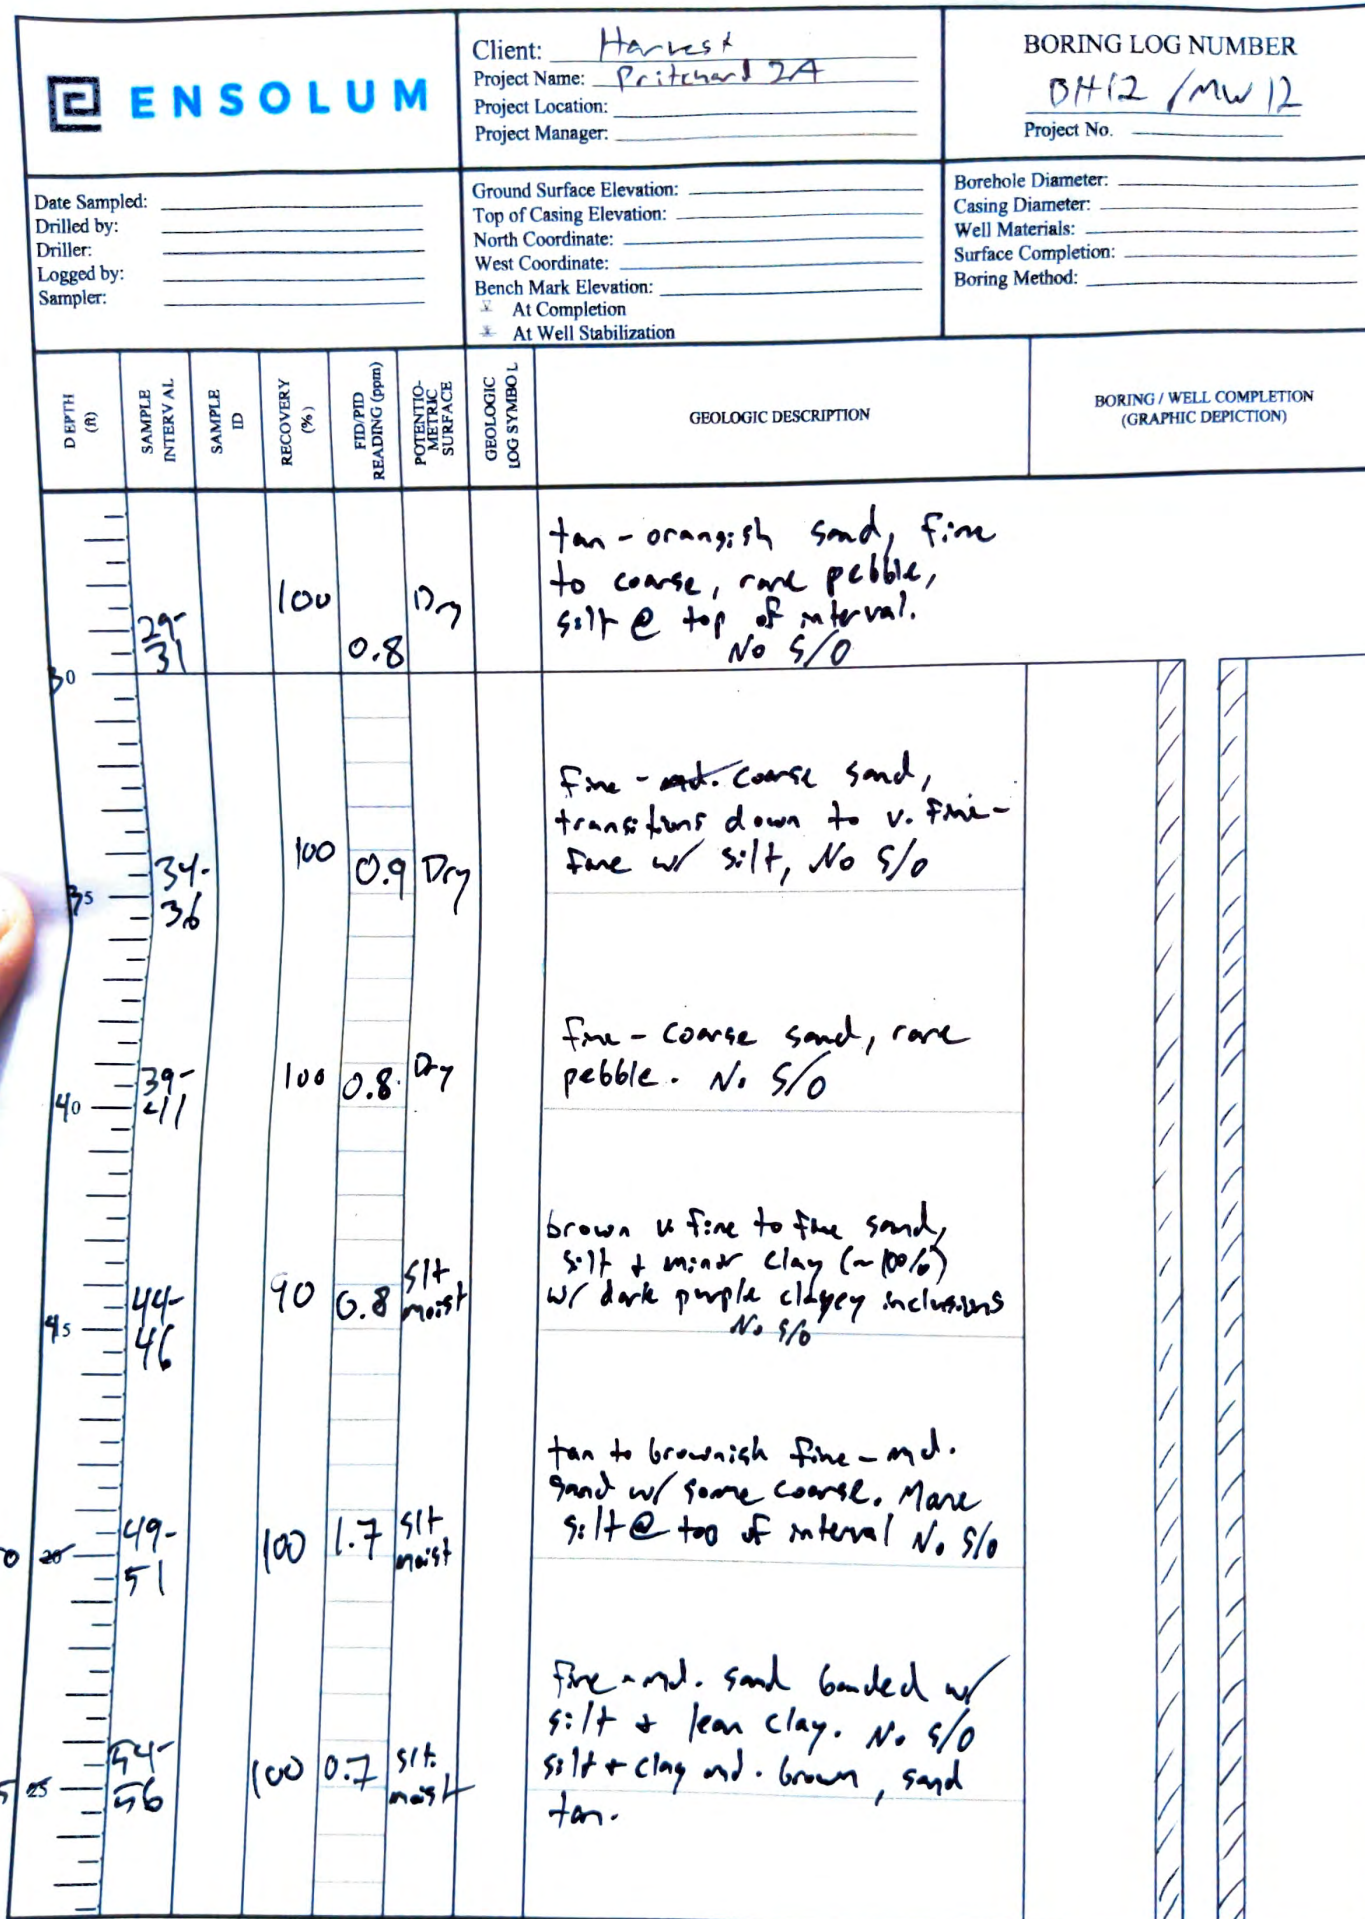 ENSOLUM
Client: Harvest
Project Name: Pritchard 2A
Project Location:
Project Manager:
BORING LOG NUMBER
BH12 / MW 12
Project No.
Date Sampled:
Drilled by:
Driller:
Logged by:
Sampler:
Ground Surface Elevation:
Top of Casing Elevation:
North Coordinate:
West Coordinate:
Bench Mark Elevation:
At Completion
At Well Stabilization
Borehole Diameter:
Casing Diameter:
Well Materials:
Surface Completion:
Boring Method:
DEPTH
(ft)
SAMPLE
INTERVAL
SAMPLE
ID
RECOVERY
(%)
FID/PID
READING (ppm)
POTENTIO-
METRIC
SURFACE
GEOLOGIC
LOG SYMBOL
GEOLOGIC DESCRIPTION
BORING / WELL COMPLETION
(GRAPHIC DEPICTION)
29-
31
100
0.8
Dry
tan - orangish sand, fine
to coarse, rare pebble,
silt @ top of interval.
No S/O
30
34-
36
100
0.9
Dry
fine - md. coarse sand,
transitions down to v. fine-
fine w/ silt, No S/O
35
39-
41
100
0.8
Dry
fine - coarse sand, rare
pebble. No S/O
40
44-
46
90
0.8
slt
moist
brown v. fine to fine sand,
silt + minor clay (~10%)
w/ dark purple clayey inclusions
No S/O
45
49-
51
100
1.7
slt
moist
tan to brownish fine - md.
sand w/ some coarse. More
silt @ top of interval No S/O
0 20
54-
56
100
0.7
slt.
moist
fine - md. sand banded w/
silt + lean clay. No S/O
silt + clay md. brown, sand
tan.
5 25